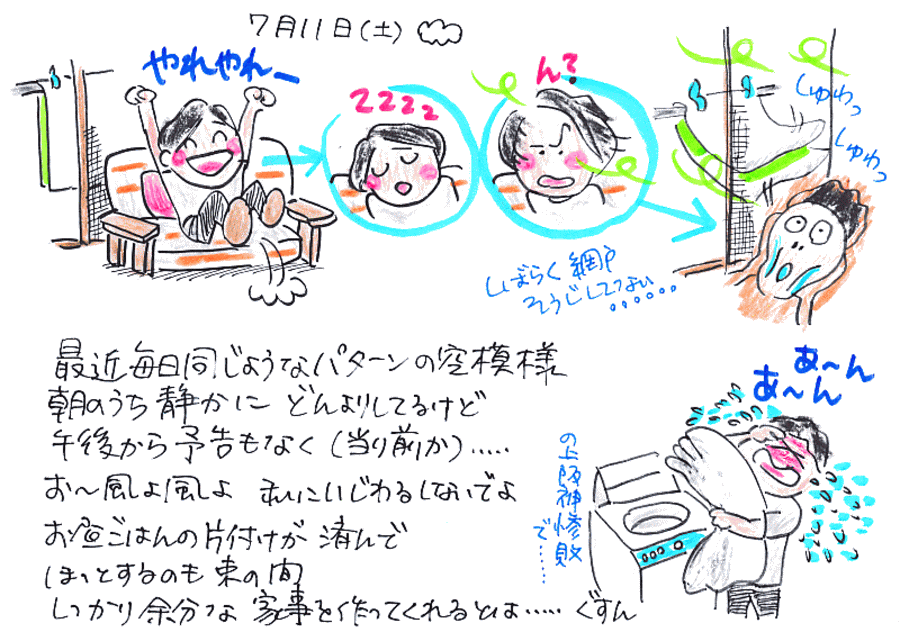 7月11日(土)
やれやれー
zzzz
ん?
しゅわっ
しゅわっ
しばらく網戸
そうじしてない
......
最近毎日同じようなパターンの空模様
朝のうち静かに どんよりしてるけど
午後から予告もなく(当り前か).....
お〜風よ風よ 私にいじわるしないでよ
お昼ごはんの片付けが済んで
ほっとするのも束の間
しっかり余分な家事を作ってくれるとは..... ぐすん
あ〜ん
あ〜ん
の上阪神惨敗
で......